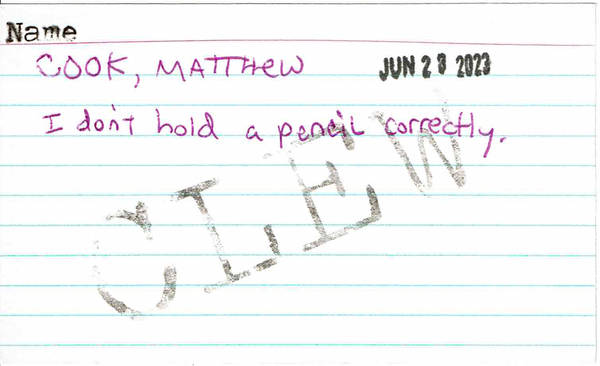 Name
COOK, MATTHEW JUN 23 2023
I don't hold a pencil correctly.
CLEW